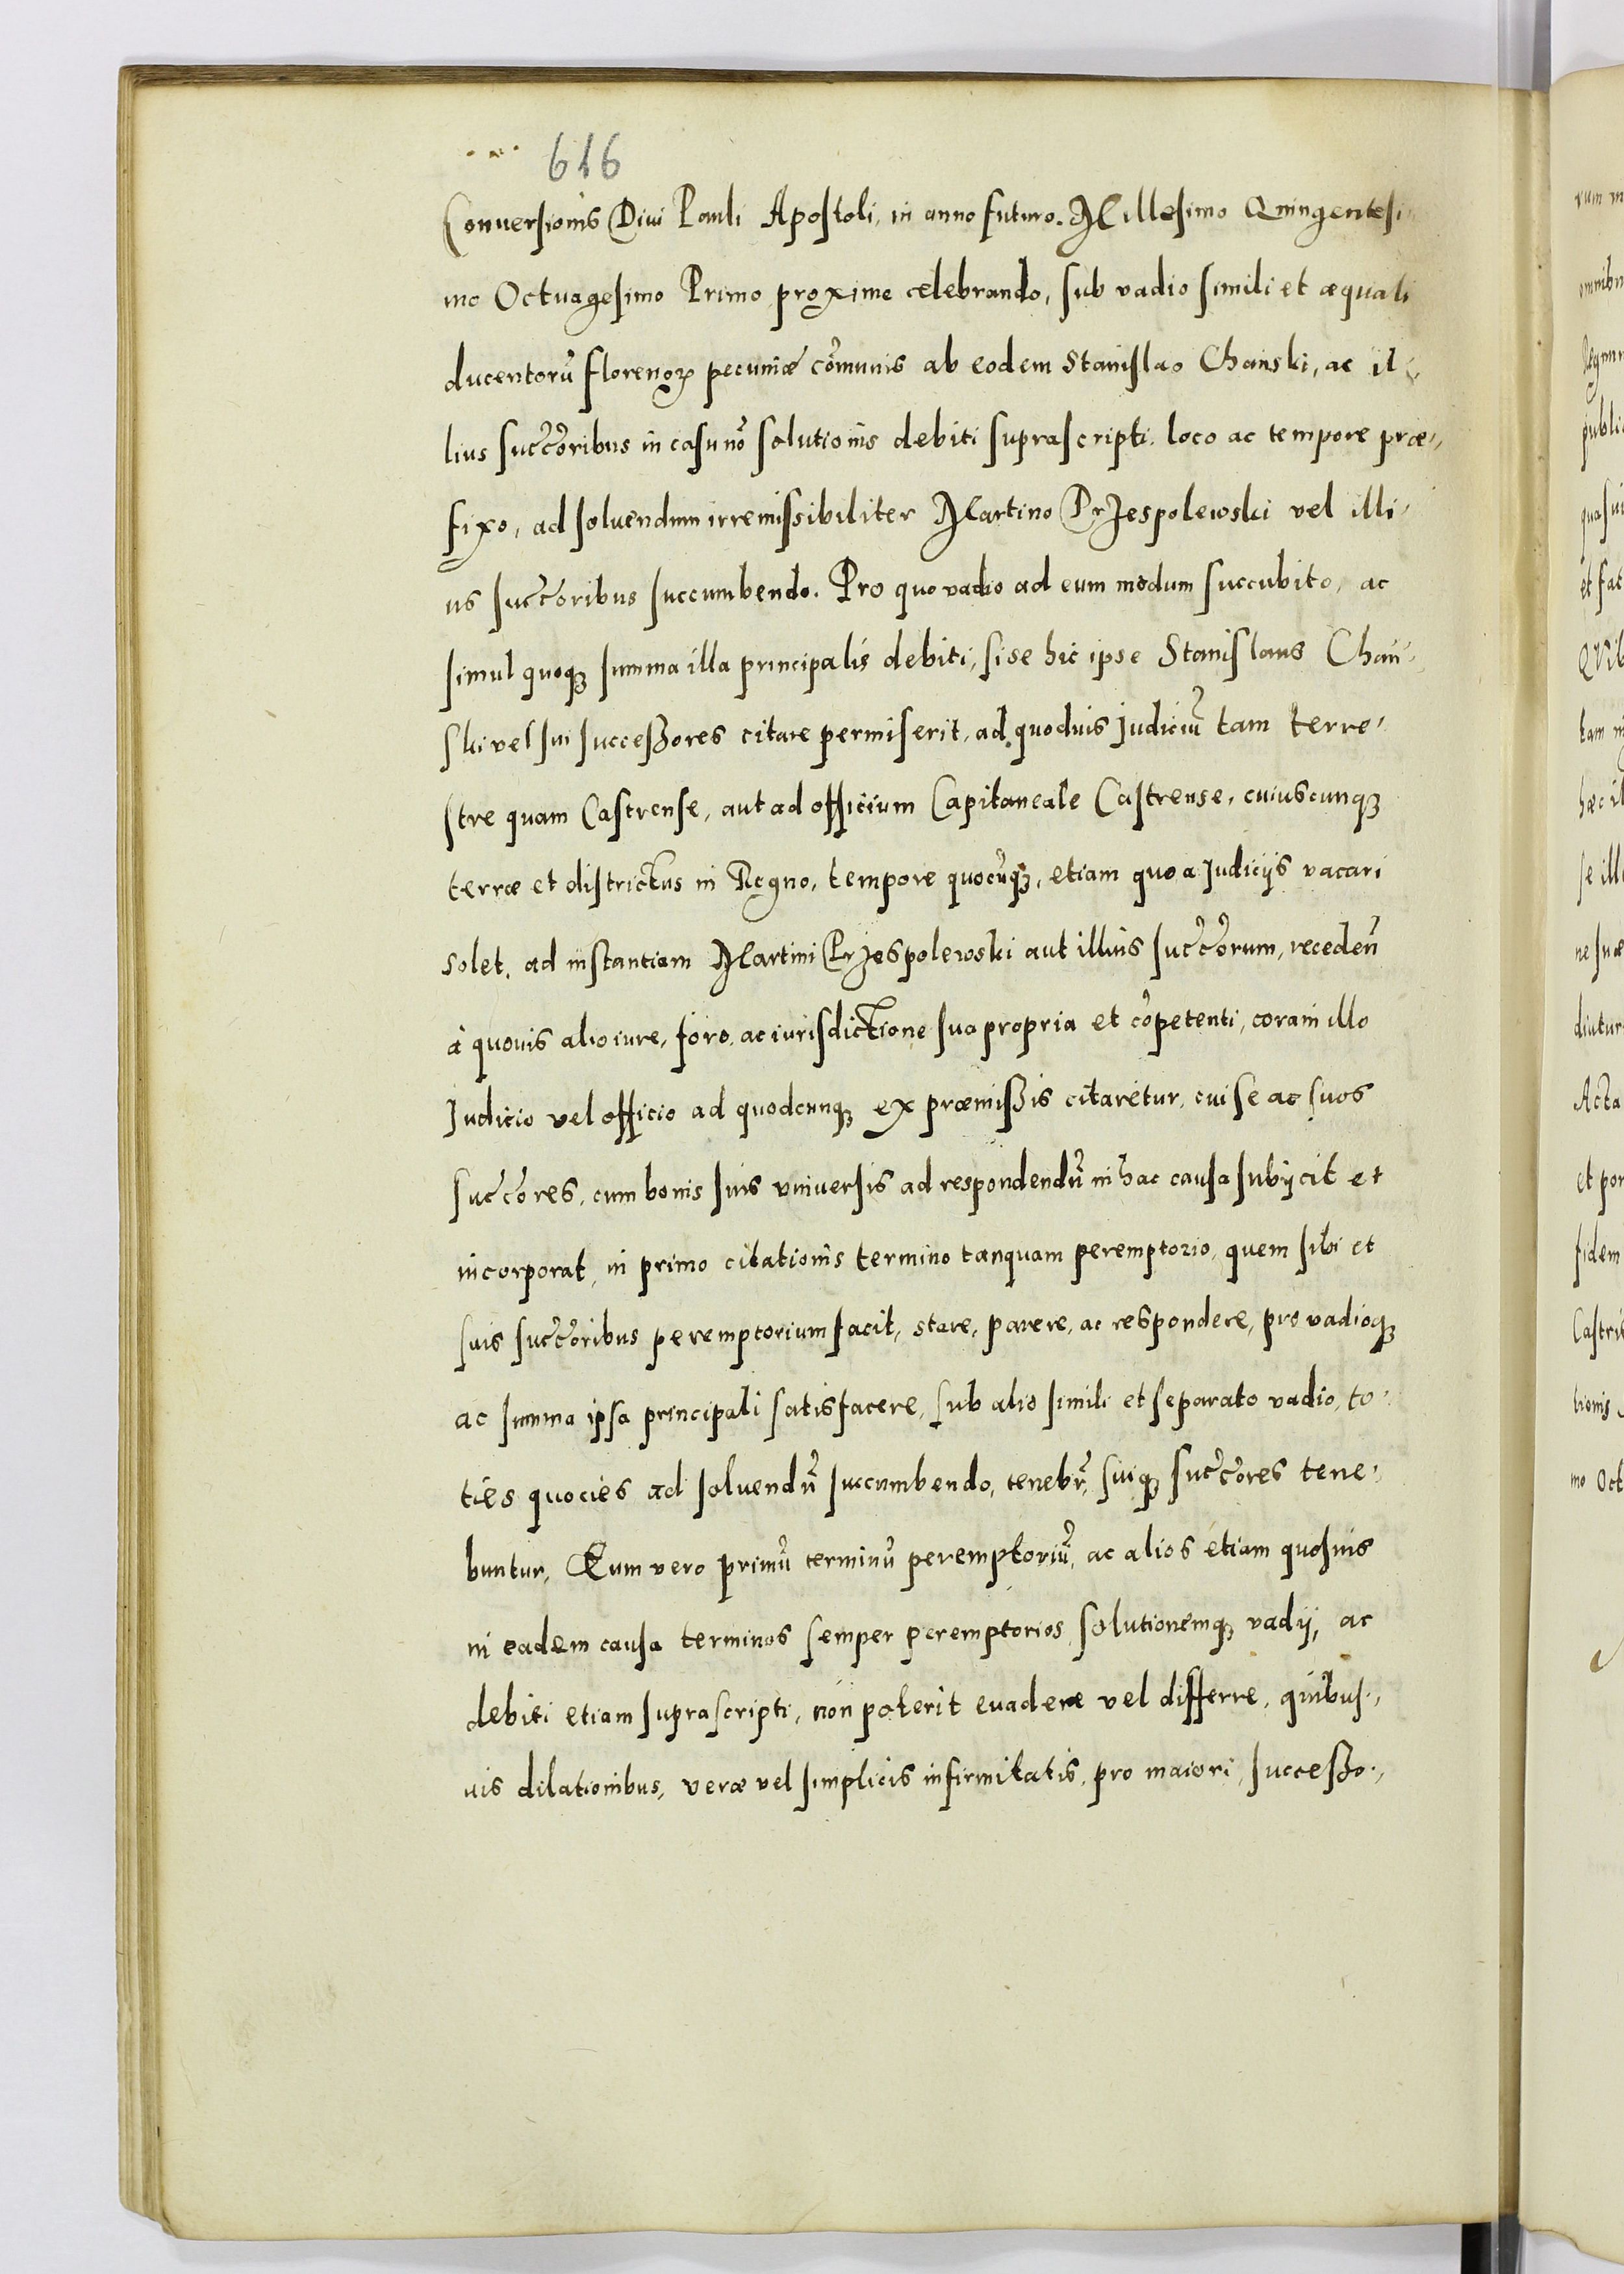 616
Conuersionis Diui Pauli Apostoli, in anno futuro. Millesimo Quingentesi
mo Octuagesimo Primo proxime celebrando, sub vadio simili et æquali
ducentorũ florenoꝝ pecuniæ cõmunis ab eodem Stanislao Chanski, ac il
lius succ̃oribus in casu nõ solutionis debiti suprascripti. loco ac tempore præ,,
fixo, ad soluendum irremissibiliter Martino Przespolewski vel illi,
us succ̃oribus succumbendo. Pro quo vadio ad eum modum succubito, ac
simul quoqꝫ summa illa principalis debiti, si se hic ipse Stanislaus Chan,
ski vel sui successores citare permiserit, ad quoduis Iudiciũ tam terre,
stre quam Castrense, aut ad officium Capitaneale Castrense, cuiuscunqꝫ
terræ et districtus in Regno, tempore quocũqꝫ, etiam quo a Iudicijs vacari
solet. ad instantiam Martini Przespolewski aut illius succ̃orum, recedeñ
à quouis alio iure, foro. ac iurisdictione sua propria et cõpetenti, coram illo
Iudicio vel officio ad quodcunqꝫ ex præmissis citaretur, cui se ac suos
succ̃ores, cum bonis suis vniuersis ad respondendũ in hac causa subijcit et
incorporat, in primo citationis termino tanquam peremptorio, quem sibi et
suis succ̃oribus peremptorium facit, stare, parere, ac respondere, pro vadioqꝫ
ac summa ipsa principali satisfacere, sub alio simili et separato vadio, to,
ties quocies ad soluendũ succumbendo, tenebr̃, suiqꝫ succ̃ores tene,
buntur, Eum vero primũ terminũ peremptoriũ, ac alios etiam quosuis
in eadem causa terminos semper peremptorios, solutionemqꝫ vadij, ac
debiti etiam suprascripti, non poterit euadere vel differre, quibus,,
uis dilationibus, veræ vel simplicis infirmitatis, pro maiori, successo,,